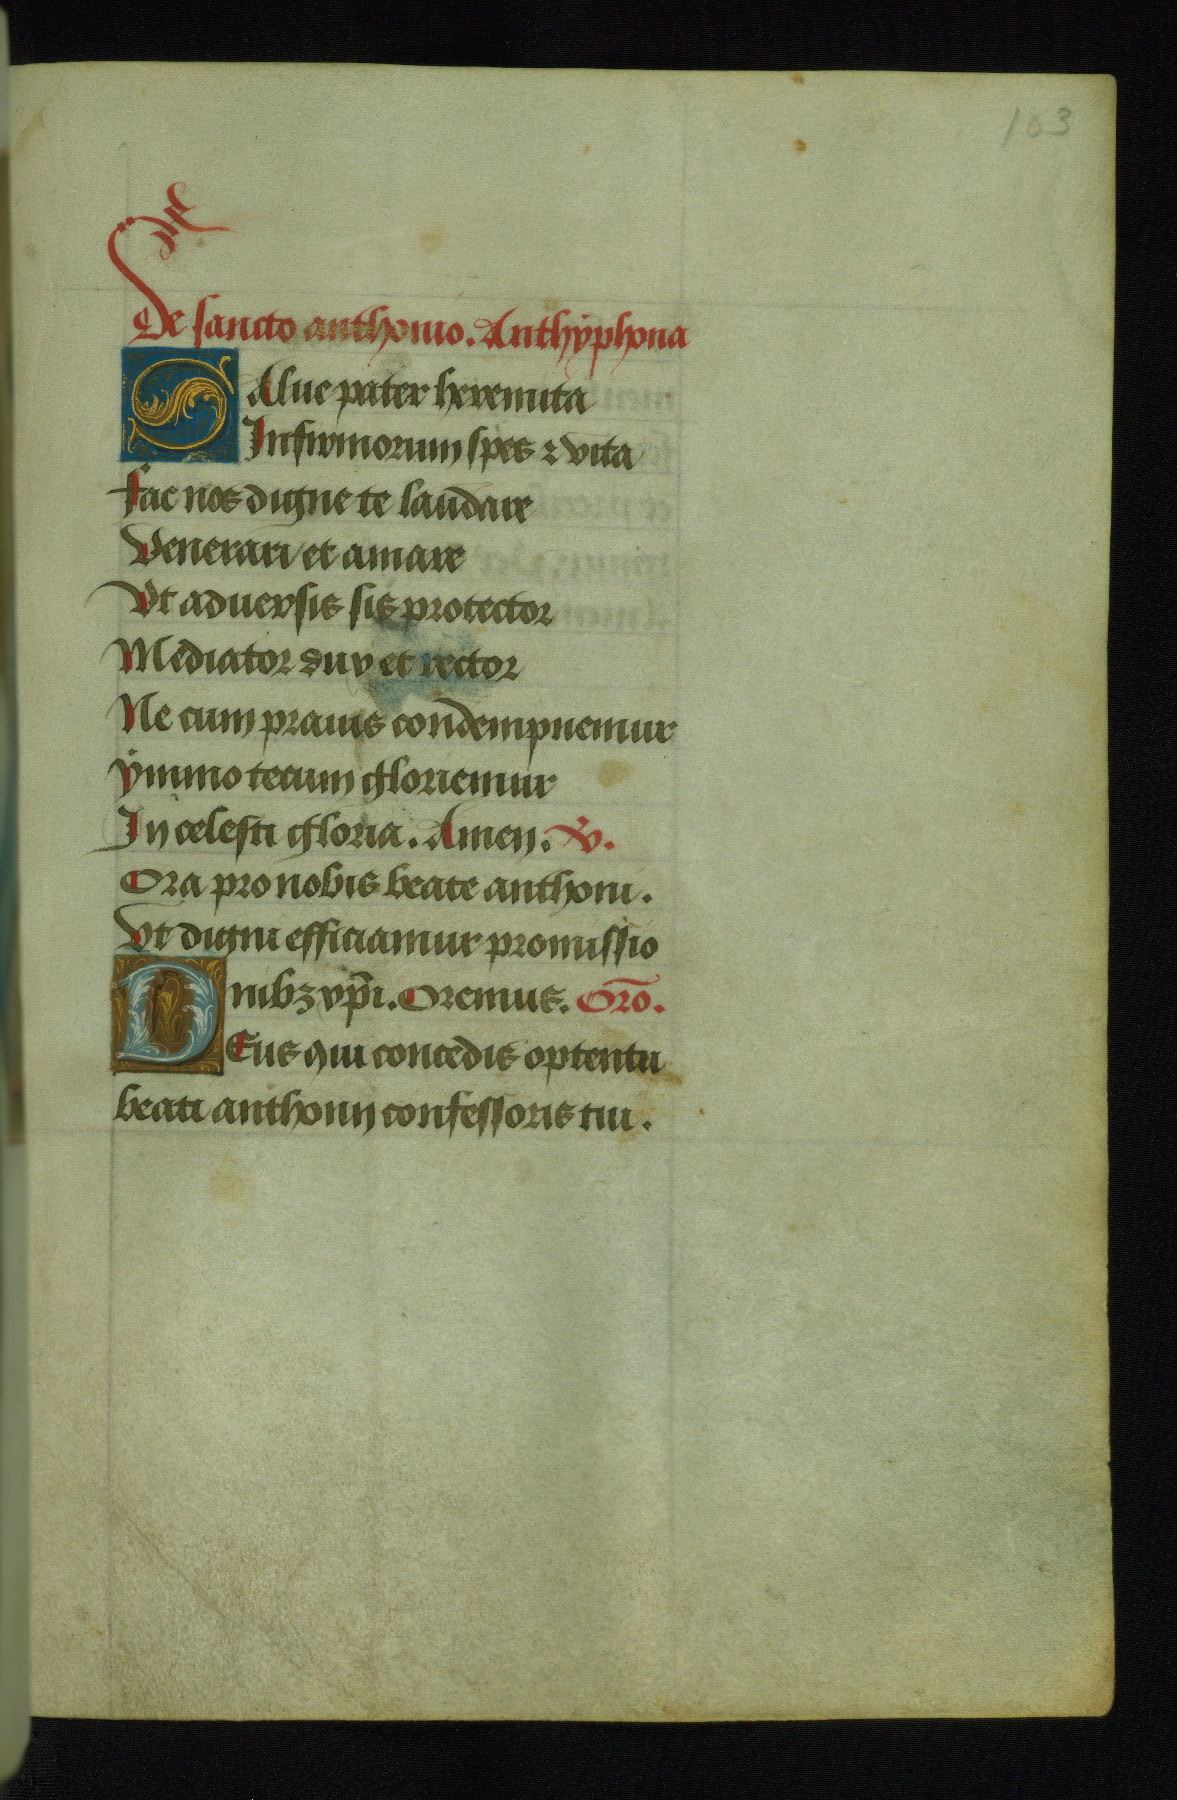 103
De sancto anthonio. Anthÿphona
SAlue pater heremita
Infirmorum spes ⁊ vita
fac nos digne te laudare
Venerari/et amare
Vt aduersis sis protector
Mediator dux et rector
Ne cum prauis condempnemur
ÿmmo tecum gloriemur
In celesti gloria. Amen. V̇.
Ora pro nobis beate anthoni.
Vt digni efficiamur promissio
nibꝫ xp̃i. Oremus. Or̃o.
DEus qui concedis optentu
beati anthonij confessoris tui.